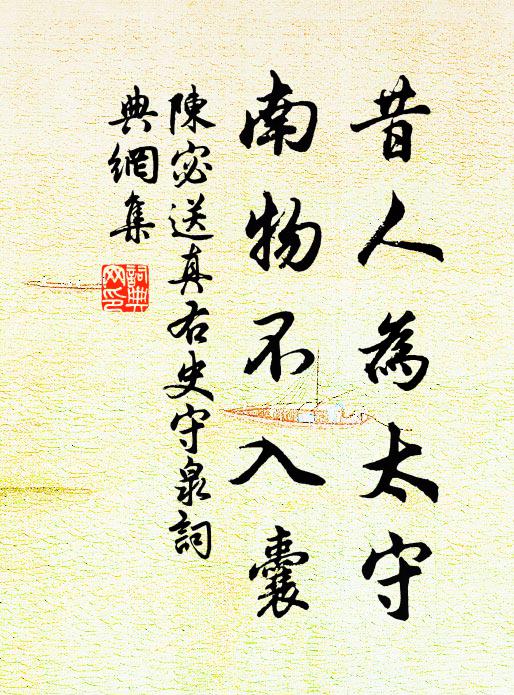 昔人為太守
南物不入囊
陳宓送真右史守泉詞
典網集
詞典
网印